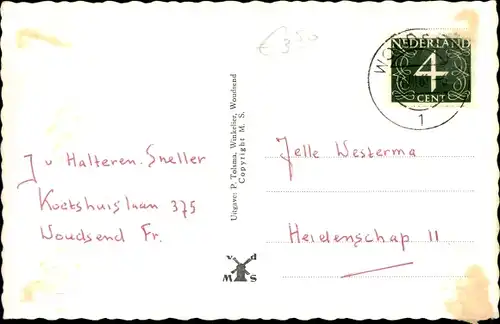 € 3,50
NEDERLAND
4
CENT
1
J v Halteren-Sneller
Koetshuislaan 375
Woudsend Fr.
Uitgave: P. Tolsma, Winkelier, Woudsend
Copyright M. S.
v d
M S
Jelle Westerma
Heidenschap 11